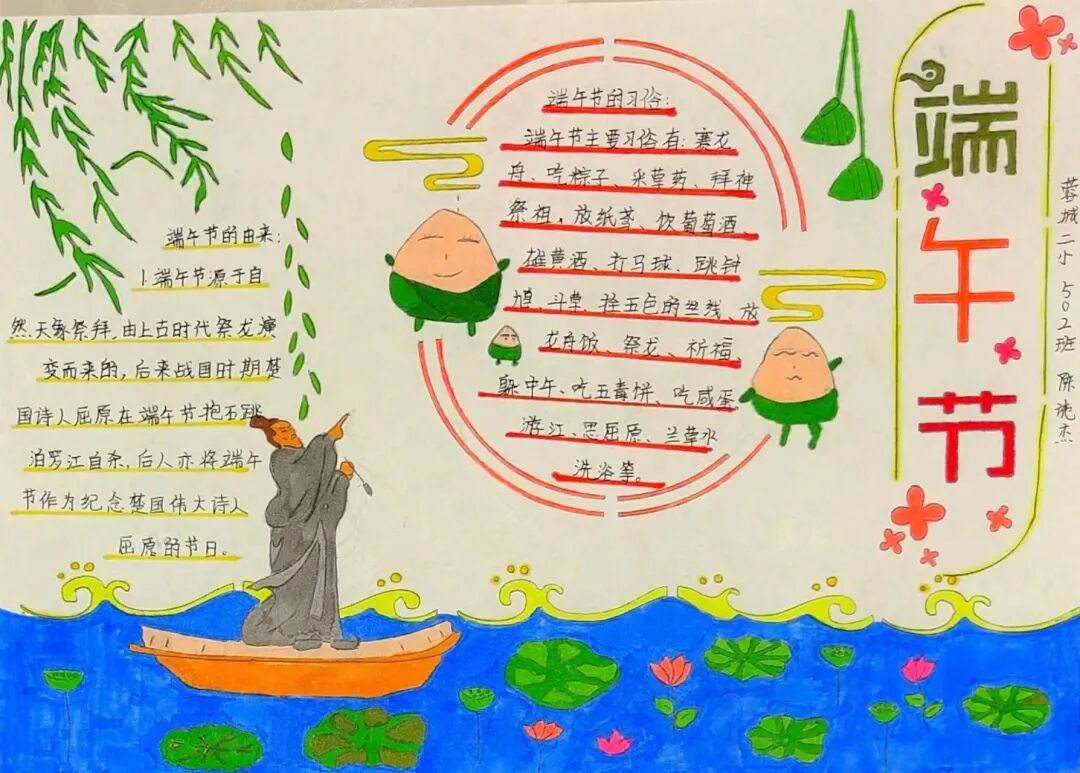 端午节的由来:
1.端午节源于自
然天象祭拜,由上古时代祭龙演
变而来的,后来战国时期楚
国诗人屈原在端午节抱石跳
泊罗江自杀,后人亦将端午
节作为纪念楚国伟大诗人
屈原的节日。
端午节的习俗:
端午节主要习俗有:赛龙
舟、吃粽子、采草药、拜神
祭祖、放纸鸢、饮葡萄酒、
雄黄酒、打马球、跳钟
馗、斗草、拴五色的丝线、放
龙舟饭、祭龙、祈福、
躲中午、吃五毒饼、吃咸蛋
游江、思屈原、兰草水
洗浴等。
端午节
蓉城二小 502班 陈 杰